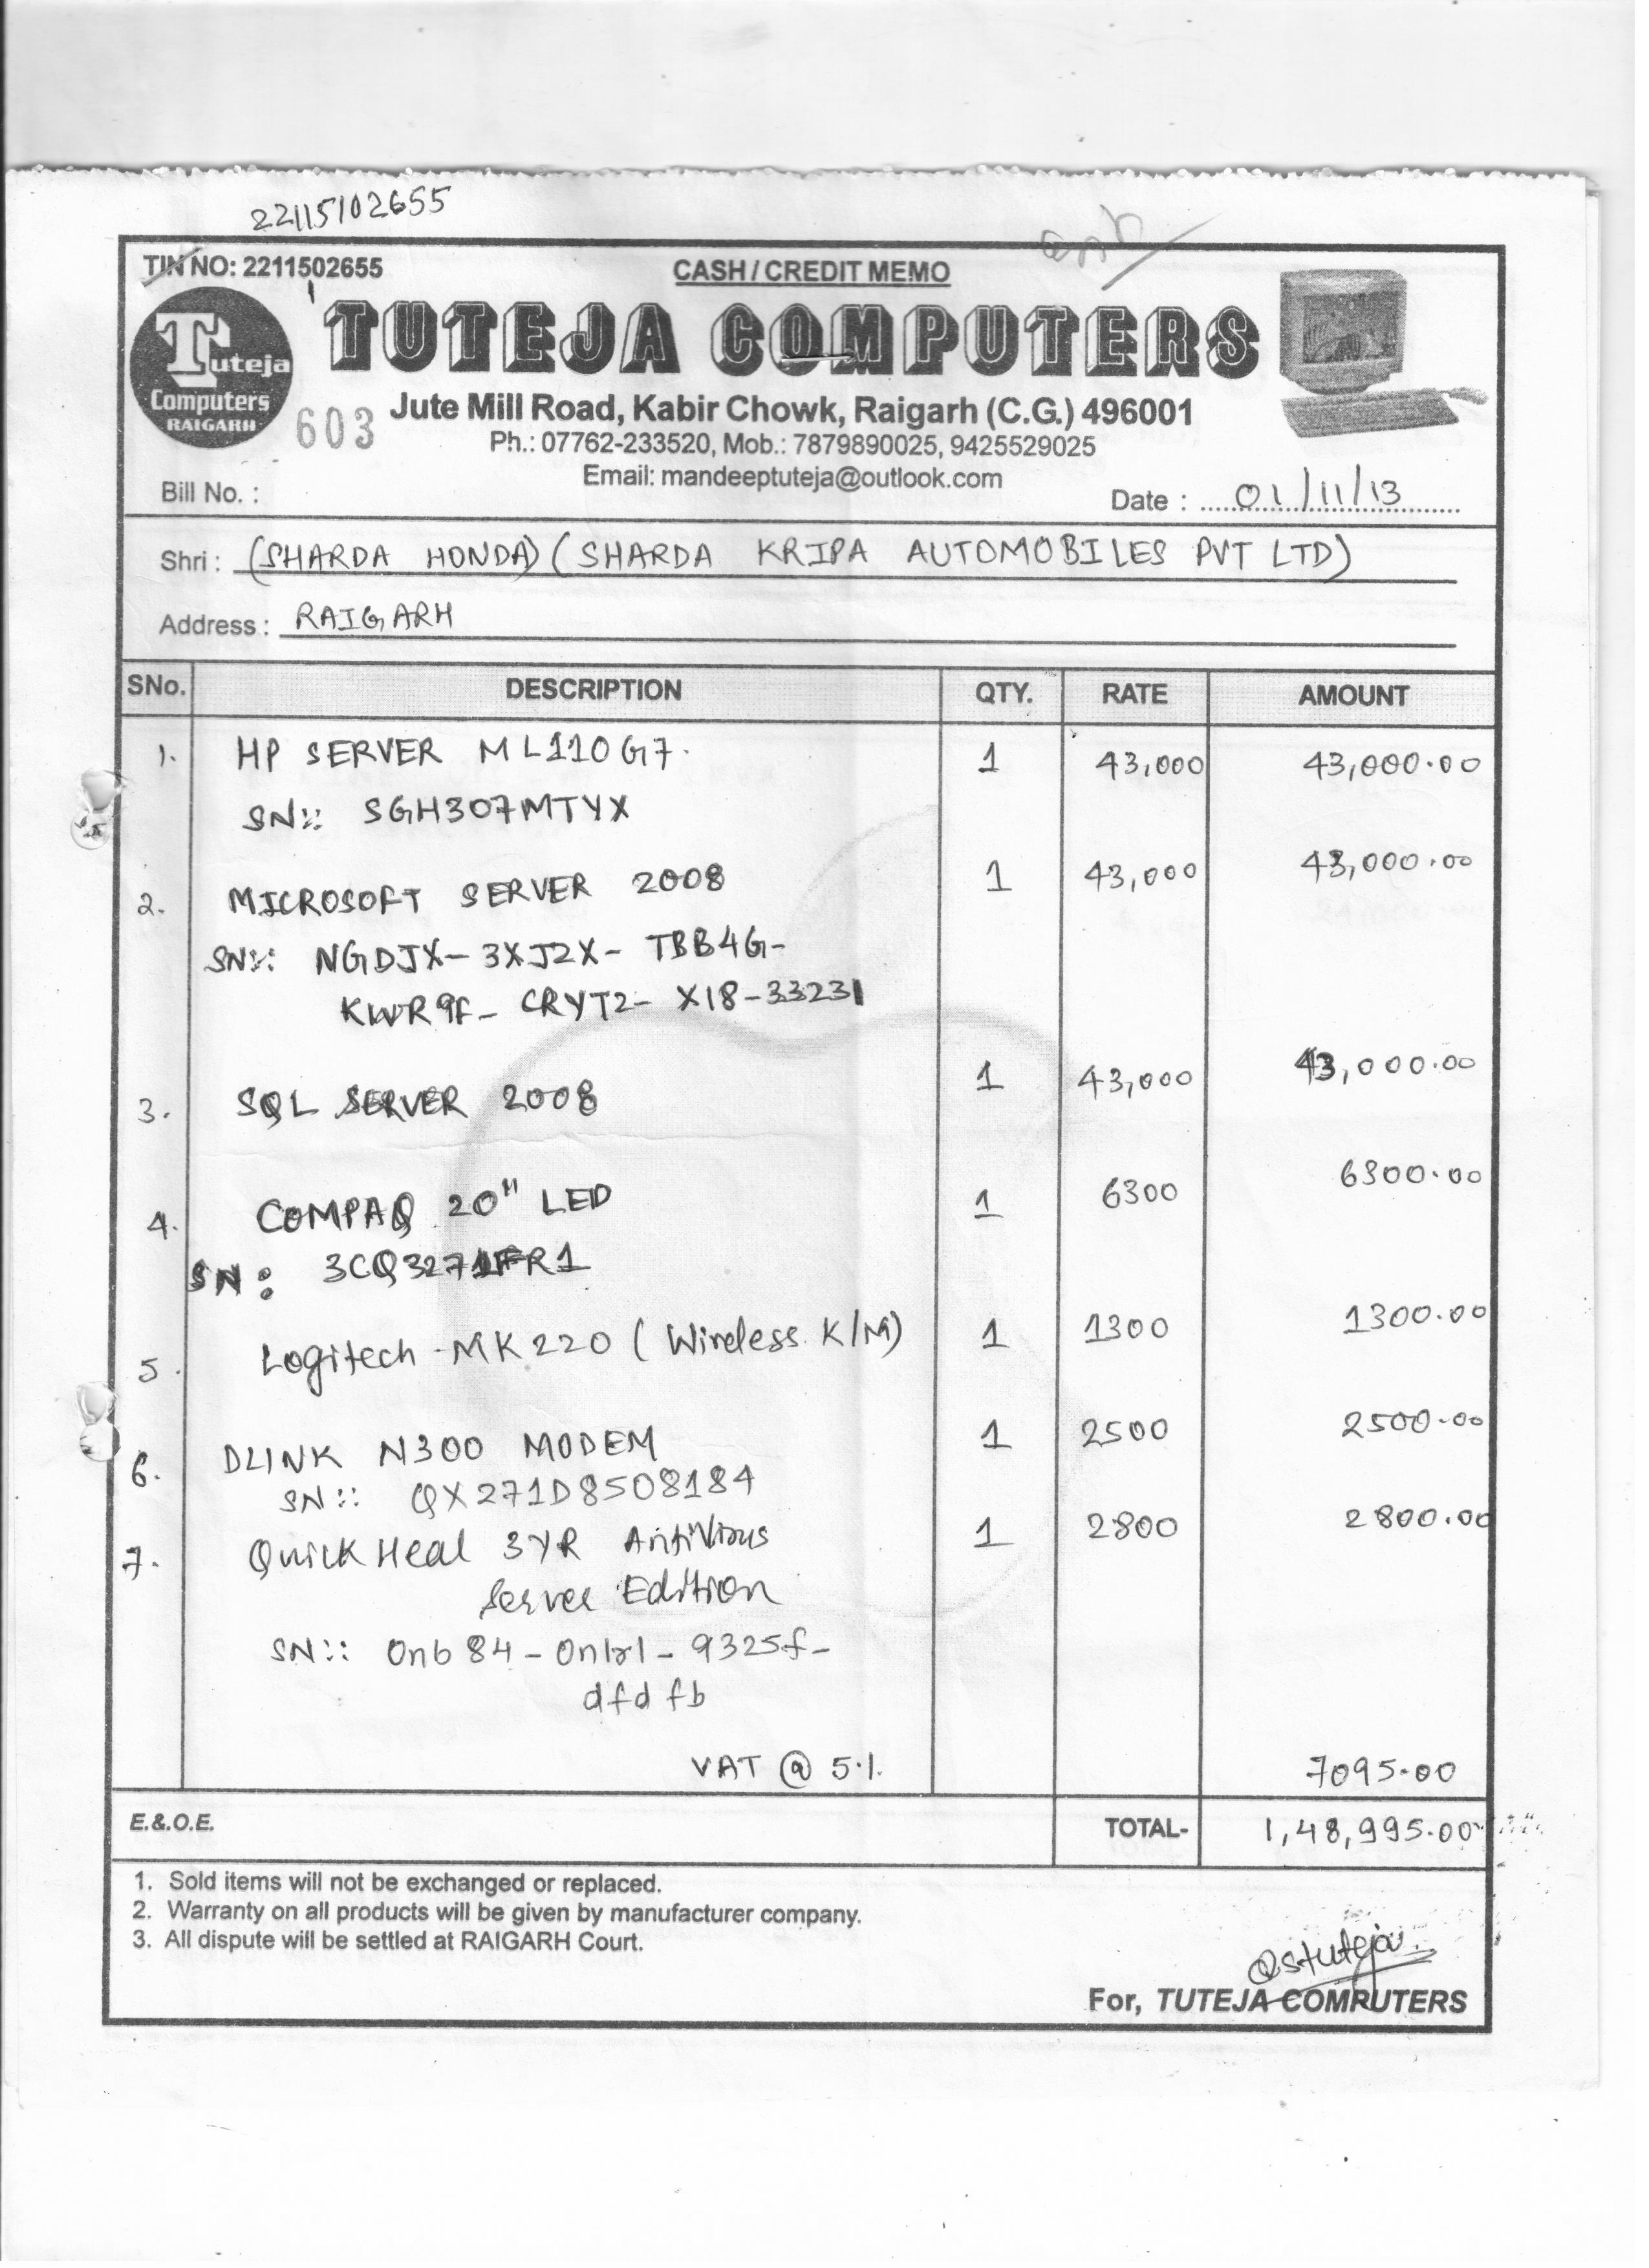 22115102655
TIN NO: 2211502655
CASH / CREDIT MEMO
Tuteja
Computers
RAIGARH
TUTEJA COMPUTERS
603
Jute Mill Road, Kabir Chowk, Raigarh (C.G.) 496001
Ph.: 07762-233520, Mob.: 7879890025, 9425529025
Email: mandeeptuteja@outlook.com
Bill No. :
Date : 01/11/13
Shri : (SHARDA HONDA) (SHARDA KRIPA AUTOMOBILES PVT LTD)
Address : RAIGARH
SNo. DESCRIPTION QTY. RATE AMOUNT
1. HP SERVER ML110G7. 1 43,000 43,000.00
SN:: SGH307MTYX
2. MICROSOFT SERVER 2008 1 43,000 43,000.00
SN:: NGDJX- 3XJ2X- TBB4G-
KWR9F- CRYT2- X18-33231
3. SQL SERVER 2008 1 43,000 43,000.00
4. COMPAQ 20" LED 1 6300 6300.00
SN: 3CQ3271FR1
5. Logitech - MK220 (Wireless K/M) 1 1300 1300.00
6. DLINK N300 MODEM 1 2500 2500.00
SN:: QX271D8508184
7. Quick Heal 3YR AntiVirus 1 2800 2800.00
Server Edition
SN:: 0nb84 - - 9325f-
dfdfb
VAT @ 5% 7095.00
E.&.O.E. TOTAL- 1,48,995.00
1. Sold items will not be exchanged or replaced.
2. Warranty on all products will be given by manufacturer company.
3. All dispute will be settled at RAIGARH Court.
For, TUTEJA COMPUTERS